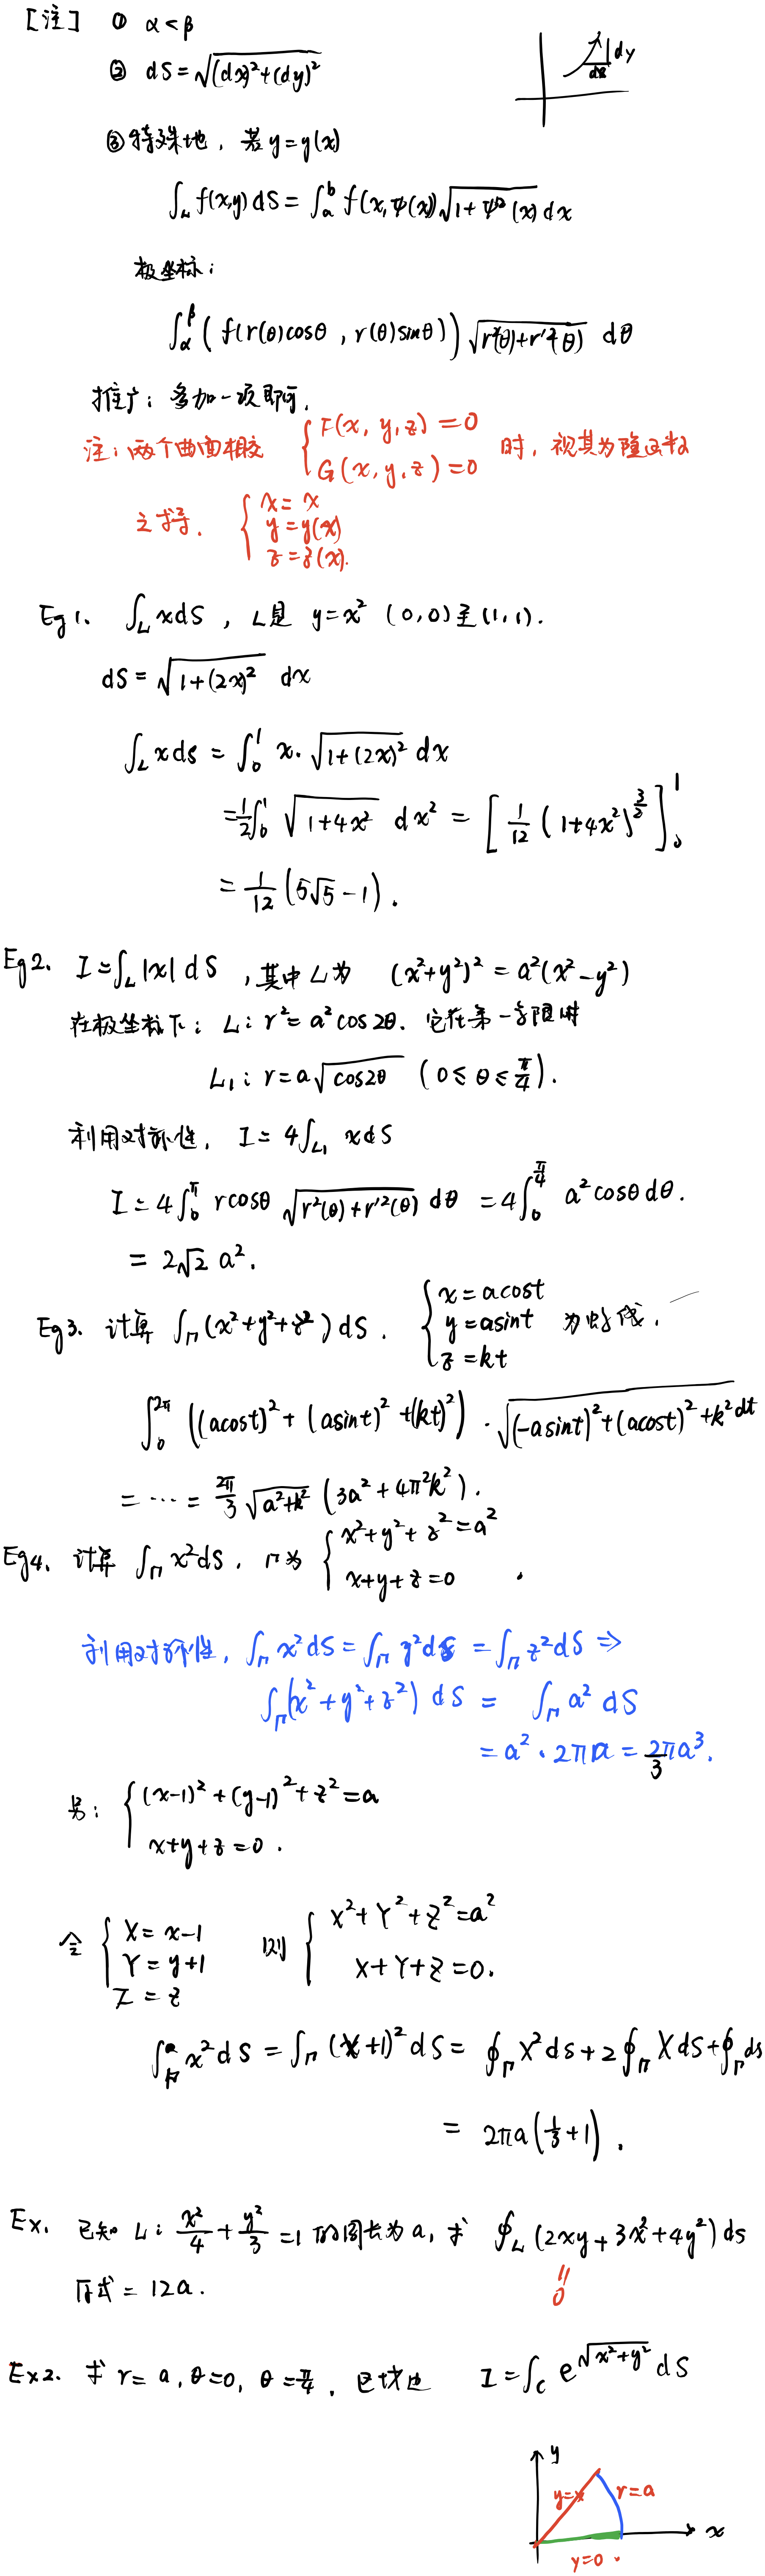 [注] ① α<β
② dS=√((dx)²+(dy)²)
dy
dx
③ 特殊地, 若 y=y(x)
∫_L f(x,y) dS = ∫_a^b f(x,ψ(x)) √(1+ψ'²(x)) dx
极坐标:
∫_α^β ( f(r(θ)cosθ , r(θ)sinθ) ) √(r²(θ)+r'²(θ)) dθ
推广: 多加一项即可.
注: 两个曲面相交 { F(x, y, z) = 0 时, 视其为隐函数
G(x, y, z) = 0
之求导. { x = x
y = y(x)
z = z(x).
Eg1. ∫_L x dS , L是 y=x² (0,0)至(1,1).
dS = √(1+(2x)²) dx
∫_L x ds = ∫_0^1 x·√(1+(2x)²) dx
= 1/2 ∫_0^1 √(1+4x²) dx² = [ 1/12 (1+4x²)^(3/2) ]_0^1
= 1/12 (5√5 - 1).
Eg2. I = ∫_L |x| dS , 其中 L 为 (x²+y²)² = a²(x²-y²)
在极坐标下: L: r² = a² cos2θ. 它在第一象限时
L₁: r = a√(cos2θ) (0 ≤ θ ≤ π/4).
利用对称性, I = 4∫_L₁ x dS
I = 4∫_0^π rcosθ √(r²(θ)+r'²(θ)) dθ = 4∫_0^(π/4) a² cosθ dθ.
= 2√2 a².
Eg3. 计算 ∫_Γ (x²+y²+z²) dS. { x = acost
y = asint 为螺线.
z = kt
∫_0^2π ((acost)² + (asint)² + (kt)²) · √((-asint)²+(acost)²+k²) dt
= ··· = 2π/3 √(a²+k²) (3a²+4π²k²).
Eg4. 计算 ∫_Γ x² dS. Γ为 { x²+y²+z²=a²
x+y+z=0 .
利用对称性, ∫_Γ x² dS = ∫_Γ y² dS = ∫_Γ z² dS ⇒
∫_Γ (x²+y²+z²) dS = ∫_Γ a² dS
= a²·2πa = 2πa³/3.
另: { (x-1)²+(y-1)²+z²=a
x+y+z=0 .
令 { X = x-1 则 { X²+Y²+Z²=a²
Y = y+1 X+Y+Z=0.
Z = z
∫_Γ x² dS = ∫_Γ (X+1)² dS = ∮_Γ X² ds + 2∮_Γ X dS + ∮_Γ ds
= 2πa(1/3+1).
Ex. 已知 L: x²/4 + y²/3 = 1 的周长为 a, 求 ∮_L (2xy+3x²+4y²) ds
原式 = 12a.
0
Ex2. 求 r=a, θ=0, θ=π/4. I = ∫_C e^√(x²+y²) dS
y
y=x
r=a
x
y=0 .